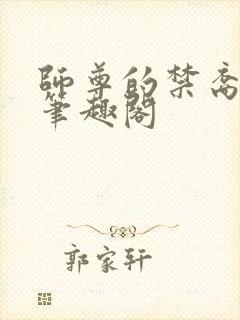 師尊的禁脔
筆趣閣
郭家軒